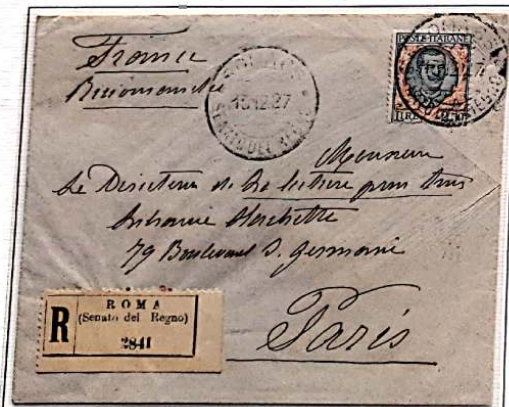 France
Raccomandata
15.12.27
POSTE ITALIANE
LIRE
Monsieur
Le Directeur de la lecture pour tous
Librairie Hachette
79 Boulevard S. Germain
Paris
R
ROMA
(Senato del Regno)
2841